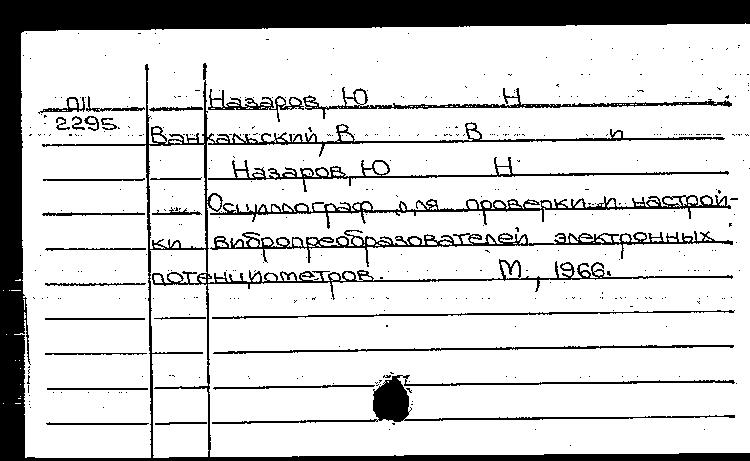 П11 Назаров, Ю Н
2295
Ванкальский, В В и
Назаров, Ю Н
Осциллограф для проверки и настрой-
ки вибропреобразователей электронных
потенциометров. М., 1966.